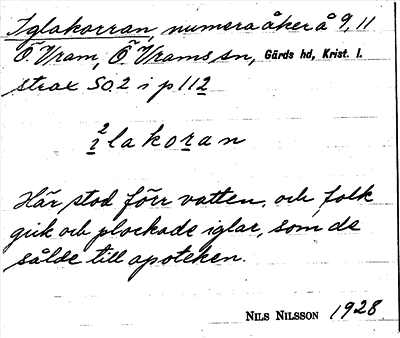 Iglakorran, numera åker å 9,11
Ö. Vram, Ö. Vrams sn, Gärds hd, Krist. l.
strax SO. 2 i p 112
2 ilakoran
Här stod förr vatten, och folk
gick och plockade iglar, som de
sålde till apoteken.
NILS NILSSON 1928